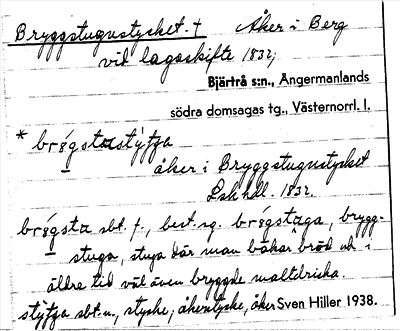 Bryggstugustycket. † Åker i Berg
vid lagaskifte 1832,
Bjärtrå s:n., Ångermanlands
södra domsagas tg., Västernorrl. l.
* brýgstastýtja
åker i Bryggstugustycket
Lsk hdl. 1832.
brýgsta sbt. f., best. sg. brýgstaga, brygg-
stuga, stuga där man bakar bröd och i
äldre tid väl även bryggde maltdricka.
stýtja sbt. n., stycke, åkerstycke, åker Sven Hiller 1938.